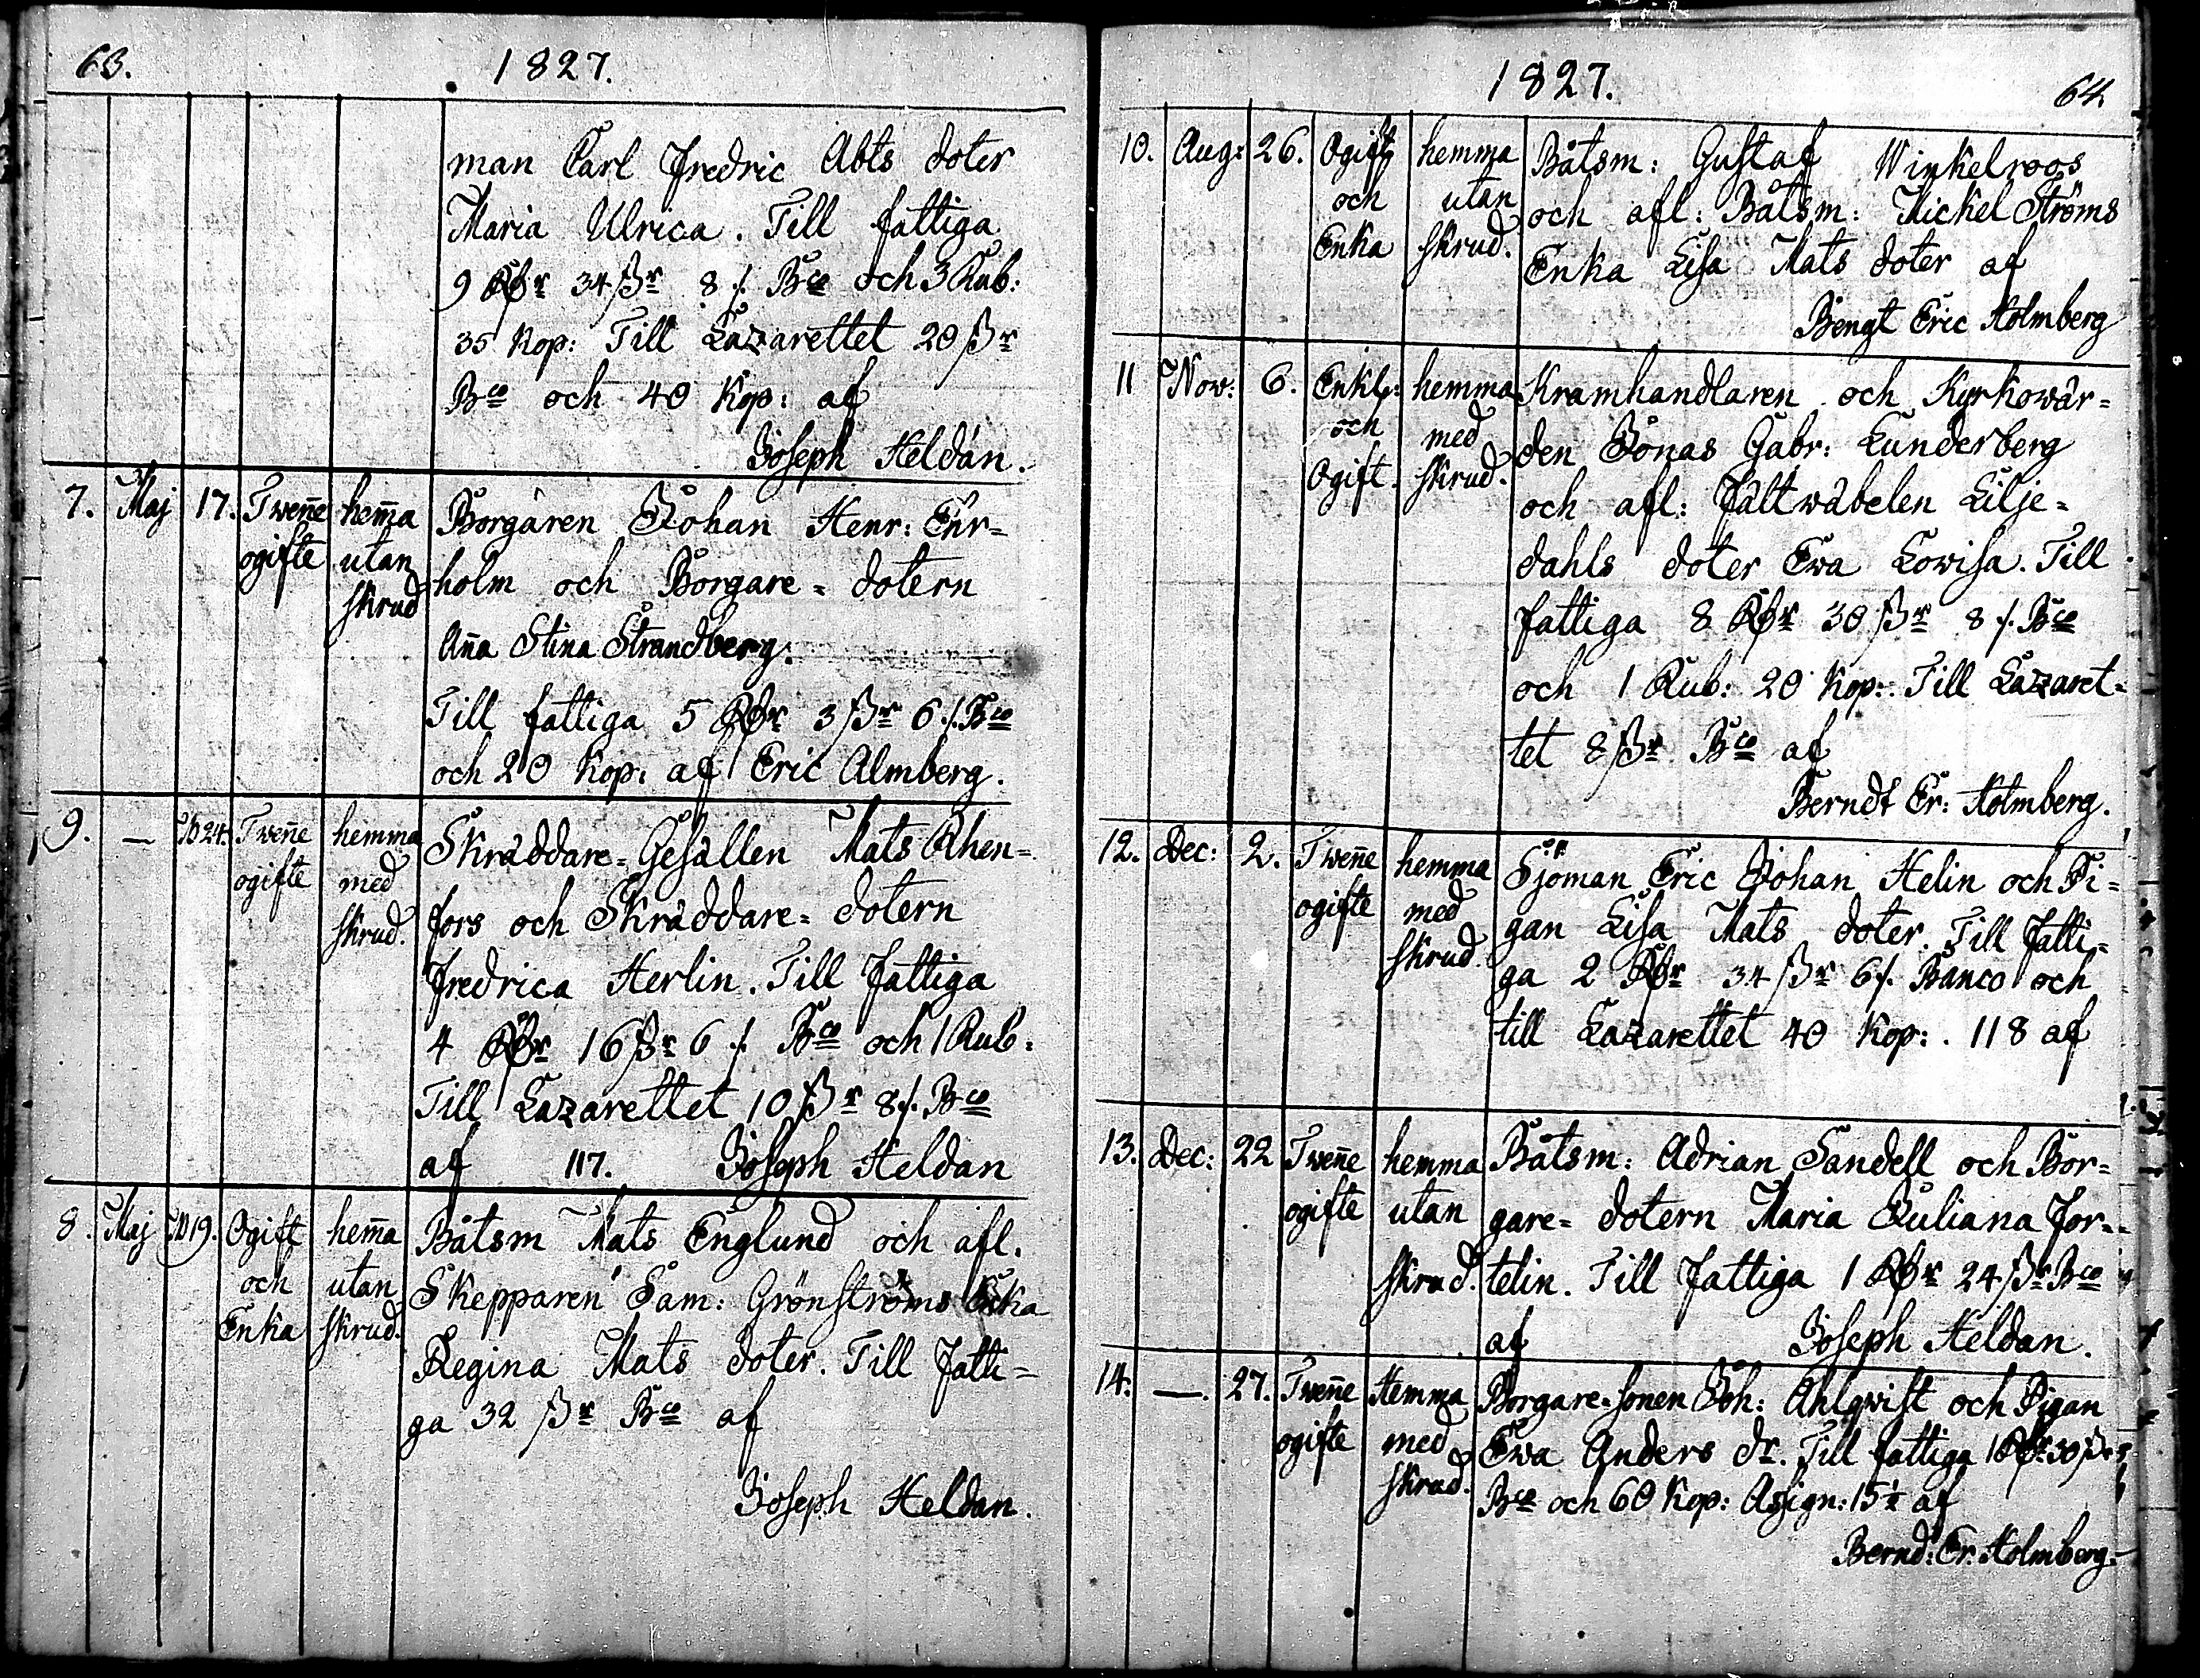 63.
1827.
man Carl Fredric Abts doter
Maria Ulrica. Till fattiga
9 Rdr 34 ßr 8 /. Bco och 3 Rub:
35 Kop: Till Lazarettet 20 ßr
Bco och 40 Kop: af
Joseph Heldán.
7. Maj 17. Twen̄e hem̄a Borgaren Johan Henr: Ehr=
ogifte utan holm och Borgare= dotern
skrud An̄a Stina Strandberg.
Till fattiga 5 Rdr 3 ßr 6 /. Bco
och 20 Kop: af Eric Almberg.
9. — 24. Twen̄e hemma Skräddare=Gesällen Mats Rhen=
ogifte med fors och Skräddare= dotern
skrud. Fredrica Herlin. Till Fattiga
4 Rdr 16 ßr 6 /. Bco och 1 Rub.
Till Lazarettet 10 ßr 8 /. Bco
af 117. Joseph Heldan
8. Maj 19. Ogift hem̄a Båtsm Mats Englund och afl.
och utan Skepparen Sam: Grönströms Enka
Enka skrud. Regina Mats doter. Till Fatti=
ga 32 ßr Bco af
Joseph Heldan.
1827.
64
10. Aug: 26. Ogift hemma Båtsm: Gustaf Winkelroos
och utan och afl: Båtsm: Mickel Ströms
Enka skrud. Enka Lisa Mats doter af
Bengt Eric Holmberg
11 Nov: 6. Enkl: hemma Kramhandlaren och Kyrkowär=
och med den Jonas Gabr: Lunderberg
Ogift. skrud. och afl: Fältwäbelen Lilje=
dahls doter Ewa Lowisa. Till
fattiga 8 Rdr 30 ßr 8 /. Bco
och 1 Rub: 20 Kop: Till Lazaret=
tet 8 ßr Bco af
Berndt Er: Holmberg.
12. Dec: 2. Twen̄e hemma Sjöman Eric Johan Helin och Pi=
ogifte med gan Lisa Mats doter. Till Fatti=
skrud. ga 2 Rdr 34 ßr 6 /. Banco och
till Lazarettet 40 Kop: . 118 af
13. Dec: 22 Twen̄e hemma Båtsm: Adrian Sandell och Bor=
ogifte utan gare= dotern Maria Juliana For=
skrud. telin. Till Fattiga 1 Rdr 24 ßr Bco
af Joseph Heldan.
14. —. 27. Twen̄e Hemma Borgare=sonen Joh: Ahlqwist och Pigan
ogifte med Ewa Anders dr. Till fattiga 1 Rdr 30 ßr
skrud. Bco och 60 Kop: Asign: af
Bernd: Er. Holmberg.